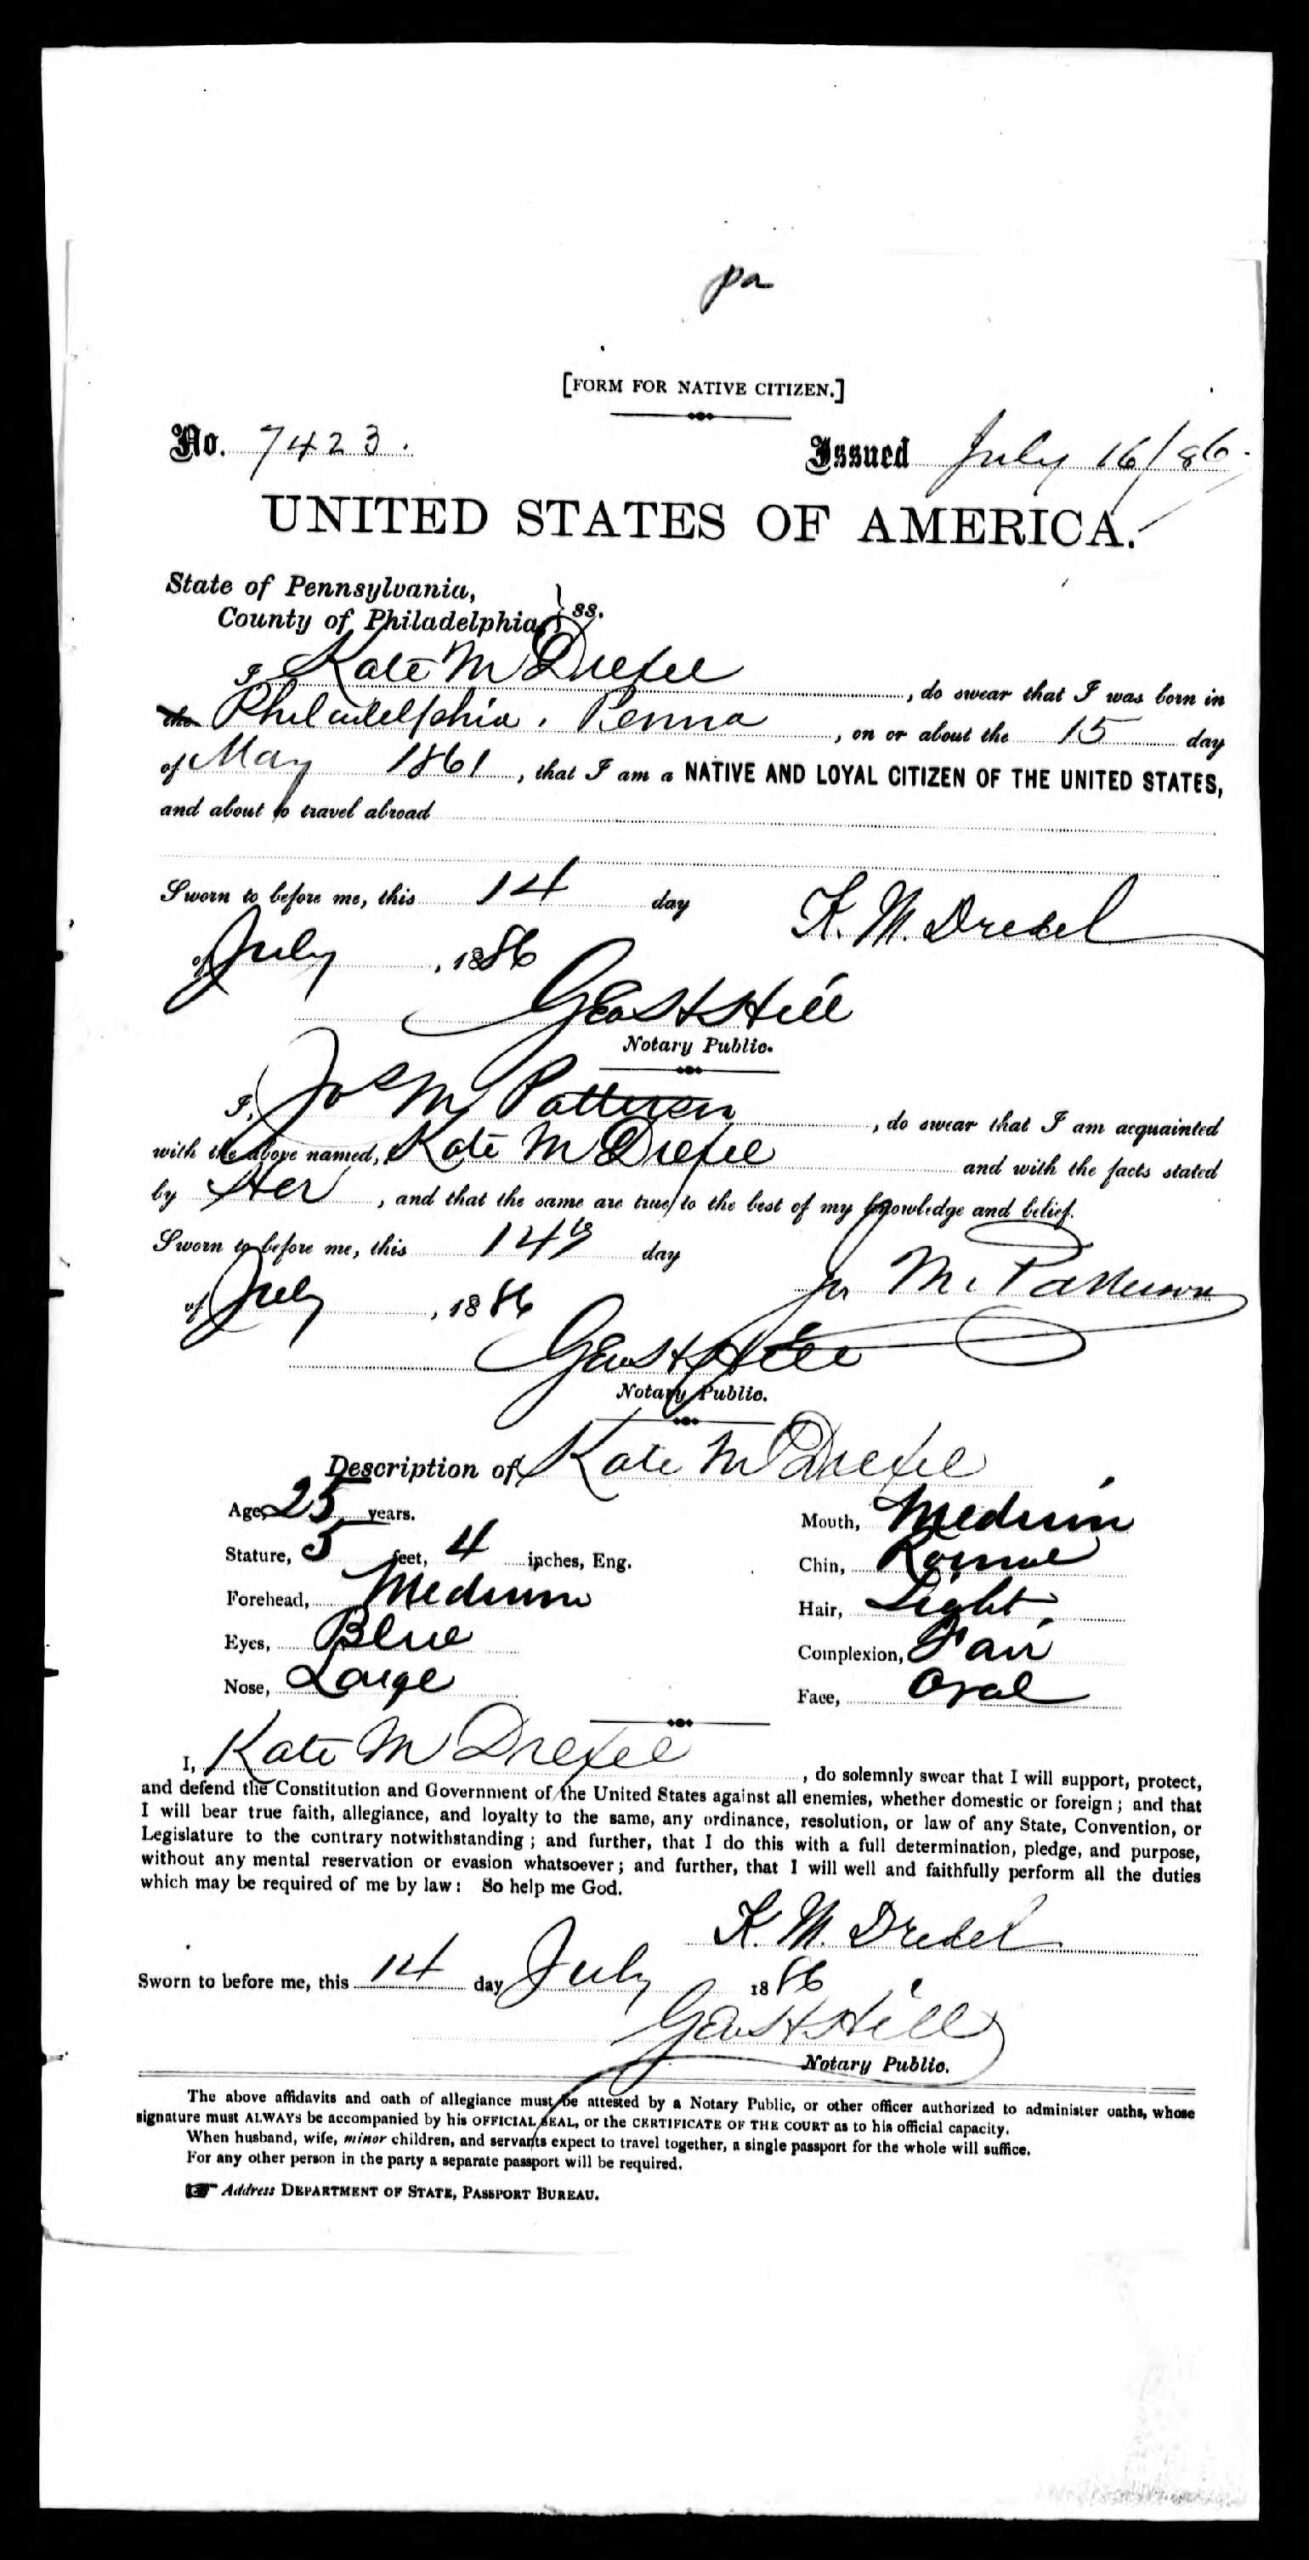 pa
[FORM FOR NATIVE CITIZEN.]
No. 7423. Issued July 16/86.
UNITED STATES OF AMERICA.
State of Pennsylvania,
County of Philadelphia, } ss.
I, Kate M Drexel, do swear that I was born in
the Philadelphia. Penna, on or about the 15 day
of May 1861, that I am a NATIVE AND LOYAL CITIZEN OF THE UNITED STATES,
and about to travel abroad
Sworn to before me, this 14 day K. M. Drexel
of July, 1886
Geo H Hill
Notary Public.
I, Jos M Patterson, do swear that I am acquainted
with the above named, Kate M Drexel and with the facts stated
by Her, and that the same are true to the best of my knowledge and belief.
Sworn to before me, this 14th day
of July, 1886 Jos M. Patterson
Geo H Hill
Notary Public.
Description of Kate M Drexel
Age, 25 years. Mouth, Medium
Stature, 5 feet, 4 inches, Eng. Chin, Round
Forehead, Medium Hair, Light
Eyes, Blue Complexion, Fair
Nose, Large Face, Oval
I, Kate M Drexel, do solemnly swear that I will support, protect,
and defend the Constitution and Government of the United States against all enemies, whether domestic or foreign; and that
I will bear true faith, allegiance, and loyalty to the same, any ordinance, resolution, or law of any State, Convention, or
Legislature to the contrary notwithstanding; and further, that I do this with a full determination, pledge, and purpose,
without any mental reservation or evasion whatsoever; and further, that I will well and faithfully perform all the duties
which may be required of me by law: So help me God.
K. M. Drexel
Sworn to before me, this 14 day July 1886
Geo H Hill
Notary Public.
The above affidavits and oath of allegiance must be attested by a Notary Public, or other officer authorized to administer oaths, whose
signature must ALWAYS be accompanied by his OFFICIAL SEAL, or the CERTIFICATE OF THE COURT as to his official capacity.
When husband, wife, minor children, and servants expect to travel together, a single passport for the whole will suffice.
For any other person in the party a separate passport will be required.
☞ Address DEPARTMENT OF STATE, PASSPORT BUREAU.